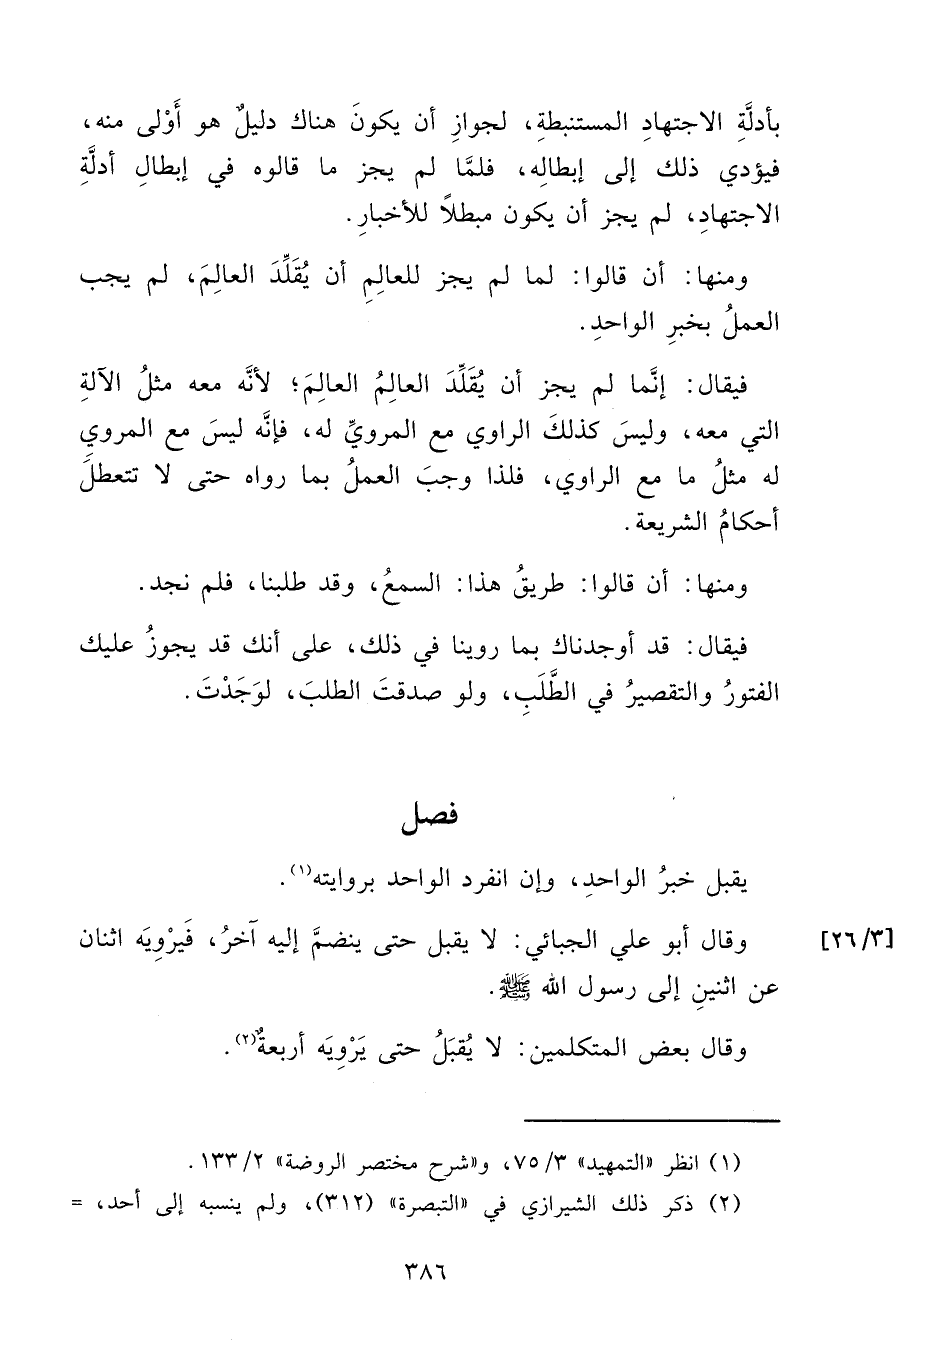 بأدلَّةِ الاجتهادِ المستنبطةِ، لجوازِ أن يكونَ هناك دليلٌ هو أَوْلى منه،
فيؤدي ذلك إلى إبطالِه، فلمَّا لم يجز ما قالوه في إبطالِ أدلَّةِ
الاجتهادِ، لم يجز أن يكون مبطلاً للأخبارِ.
ومنها: أن قالوا: لما لم يجز للعالِمِ أن يُقَلِّدَ العالِمَ، لم يجب
العملُ بخبرِ الواحدِ.
فيقال: إنَّما لم يجز أن يُقَلِّدَ العالِمُ العالِمَ؛ لأنَّه معه مثلُ الآلةِ
التي معه، وليسَ كذلكَ الراوي مع المرويِّ له، فإنَّه ليسَ مع المرويِ
له مثلُ ما مع الراوي، فلذا وجبَ العملُ بما رواه حتى لا تتعطلَ
أحكامُ الشريعة.
ومنها: أن قالوا: طريقُ هذا: السمعُ، وقد طلبنا، فلم نجد.
فيقال: قد أوجدناك بما روينا في ذلك، على أنك قد يجوزُ عليك
الفتورُ والتقصيرُ في الطَّلَبِ، ولو صدقتَ الطلبَ، لوَجَدْتَ.
فصل
يقبل خبرُ الواحدِ، وإن انفرد الواحد بروايته(١).
وقال أبو علي الجبائي: لا يقبل حتى ينضمَّ إليه آخرُ، فَيرْوِيَه اثنان [٢٦/٣]
عن اثنينِ إلى رسول الله ﷺ.
وقال بعض المتكلمين: لا يُقبَلُ حتى يَرْوِيَه أربعةٌ(٢).
(١) انظر «التمهيد» ٧٥/٣، و«شرح مختصر الروضة» ١٣٣/٢.
(٢) ذكر ذلك الشيرازي في «التبصرة» (٣١٢)، ولم ينسبه إلى أحد، =
٣٨٦